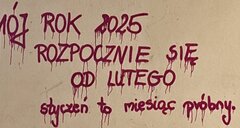 MÓJ ROK 2025
ROZPOCZNIE SIĘ
OD LUTEGO
styczeń to miesiąc próbny.